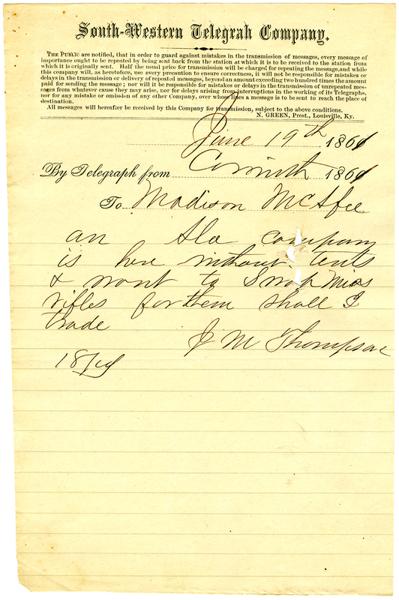 South-Western Telegrah Company.
THE PUBLIC are notified, that in order to guard against mistakes in the transmission of messages, every message of
importance ought to be repeated by being sent back from the station at which it is to be received to the station from
which it is originally sent. Half the usual price for transmission will be charged for repeating the message, and while
this company will, as heretofore, use every precaution to ensure correctness, it will not be responsible for mistakes or
delays in the transmission or delivery of repeated messages, beyond an amount exceeding two hundred times the amount
paid for sending the message; nor will it be responsible for mistakes or delays in the transmission of unrepeated mes-
sages from whatever cause they may arise, nor for delays arising from interruptions in the working of its Telegraphs,
nor for any mistake or omission of any other Company, over whose lines a message is to be sent to reach the place of
destination.
All messages will hereafter be received by this Company for transmission, subject to the above conditions.
N. GREEN, Prest., Louisville, Ky.
June 19th 1861
By Telegraph from Corinth 1861
To Madison McAfee
an Ala company
is here without tents
& want to Swap Miss
rifles for them shall I
trade
J M Thompson